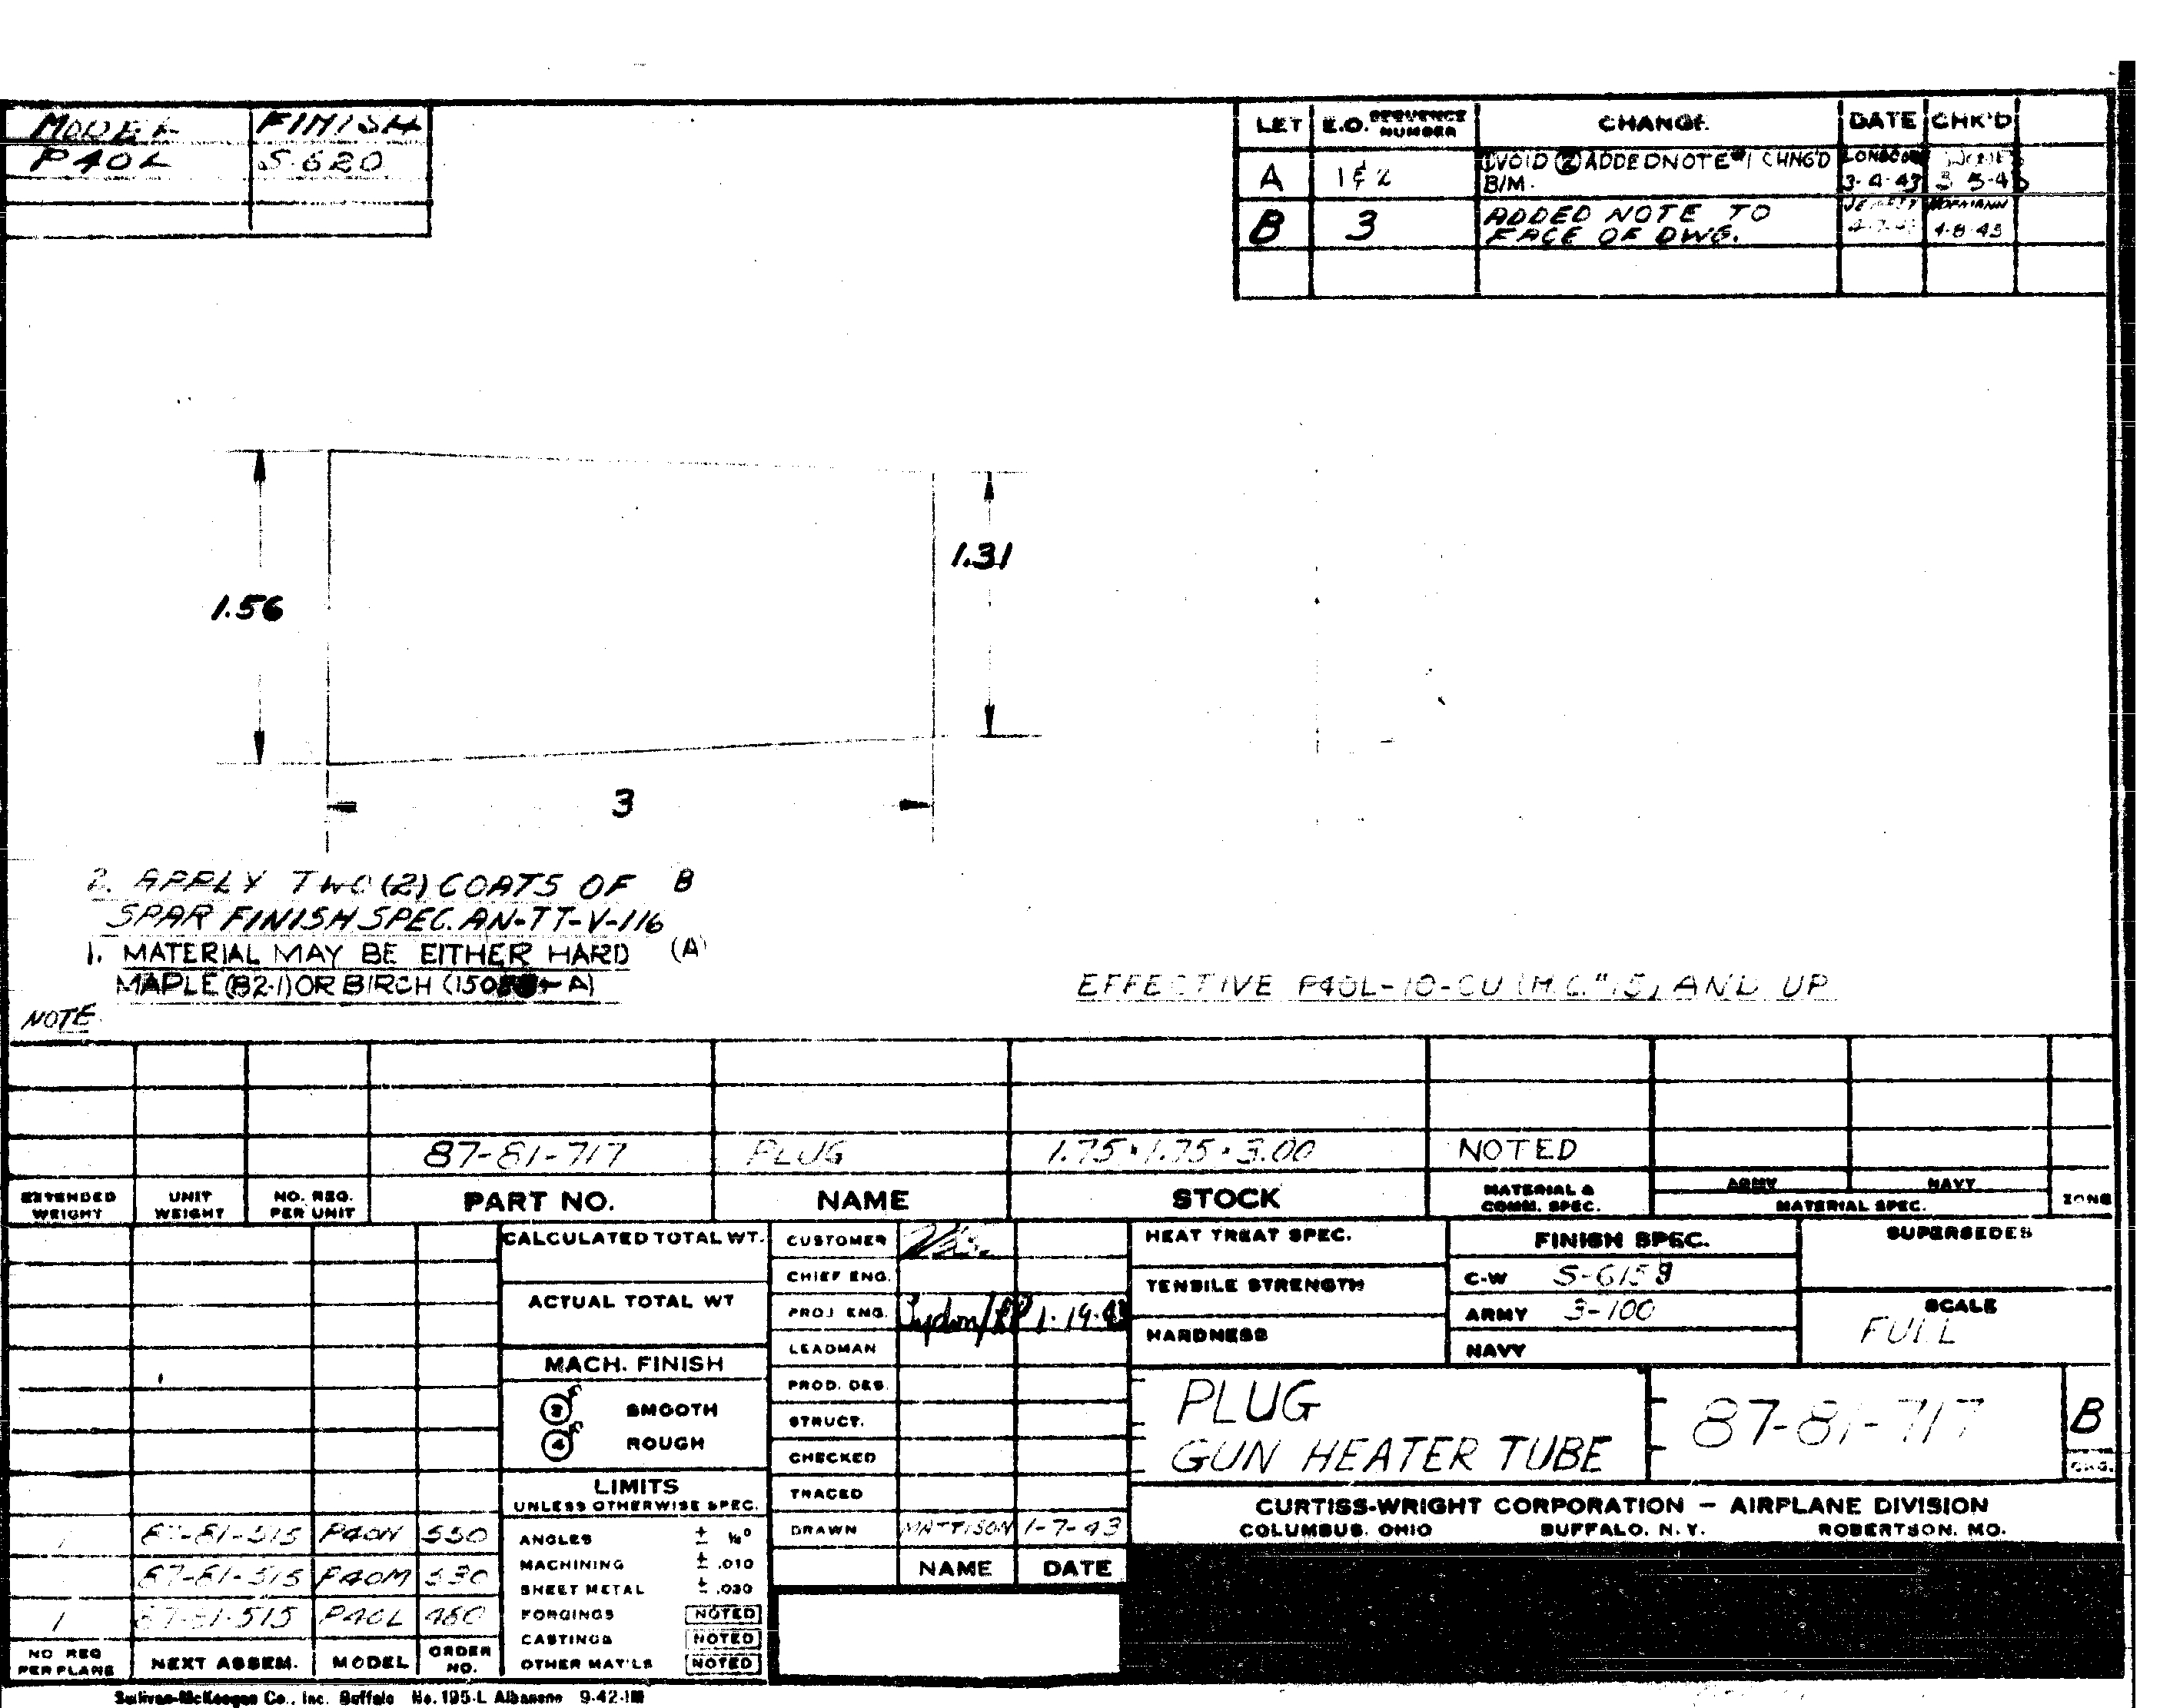 MODEL FINISH
P40L S-620
LET E.O. SEQUENCE NUMBER CHANGE DATE CHK'D
A 1 & 2 VOID (2) ADDED NOTE #1 CHNG'D B/M. 3-4-43
B 3 ADDED NOTE TO FACE OF DWG. 4-8-43
1.56
1.31
3
2. APPLY TWO (2) COATS OF B
SPAR FINISH SPEC. AN-TT-V-116
1. MATERIAL MAY BE EITHER HARD (A)
MAPLE (82-1) OR BIRCH
NOTE
EFFECTIVE P40L-10-CU (M.C.#15) AND UP
87-81-717 PLUG 1.75 × 1.75 × 3.00 NOTED
EXTENDED WEIGHT UNIT WEIGHT NO. REQ. PER UNIT PART NO. NAME STOCK MATERIAL & COMM. SPEC. ARMY NAVY MATERIAL SPEC. ZONE
CALCULATED TOTAL WT.
ACTUAL TOTAL WT
MACH. FINISH
3 f SMOOTH
4 f ROUGH
LIMITS
UNLESS OTHERWISE SPEC.
ANGLES ±
MACHINING ± .010
SHEET METAL ± .030
FORGINGS NOTED
CASTINGS NOTED
OTHER MAT'LS NOTED
87-81-515 P40N 550
87-81-515 P40M 530
1 87-81-515 P40L 480
NO REQ PER PLANE NEXT ASSEM. MODEL ORDER NO.
CUSTOMER
CHIEF ENG.
PROJ ENG.
LEADMAN
PROD. DES.
STRUCT.
CHECKED
TRACED
DRAWN MATTISON 1-7-43
NAME DATE
HEAT TREAT SPEC.
TENSILE STRENGTH
HARDNESS
FINISH SPEC.
C-W
ARMY 3-100
NAVY
SUPERSEDES
SCALE
FULL
PLUG
GUN HEATER TUBE
87-81-717
B
CHG.
CURTISS-WRIGHT CORPORATION — AIRPLANE DIVISION
COLUMBUS, OHIO BUFFALO, N. Y. ROBERTSON, MO.
Sullivan-McKeegan Co., Inc. Buffalo No. 195-L Albanene 9-42-1M